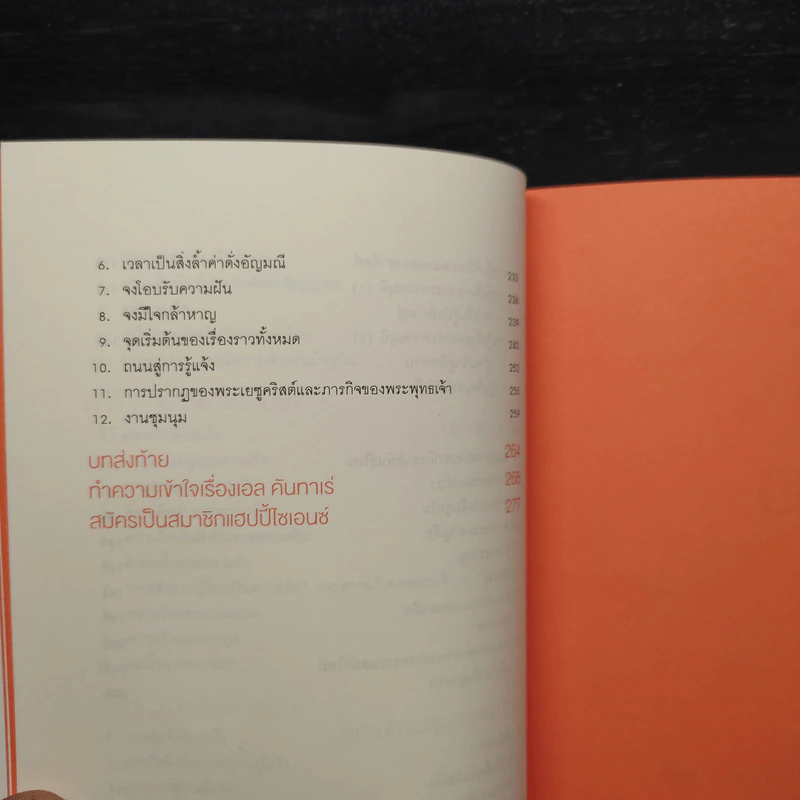 6. เวลาเป็นสิ่งล้ำค่าดั่งอัญมณี 233
7. จงโอบรับความฝัน 236
8. จงมีใจกล้าหาญ 239
9. จุดเริ่มต้นของเรื่องราวทั้งหมด 243
10. ถนนสู่การรู้แจ้ง 251
11. การปรากฏของพระเยซูคริสต์และภารกิจของพระพุทธเจ้า 255
12. งานชุมนุม 259
บทส่งท้าย 264
ทำความเข้าใจเรื่องเอล คันทาเร่ 268
สมัครเป็นสมาชิกแฮปปี้ไซเอนซ์ 277